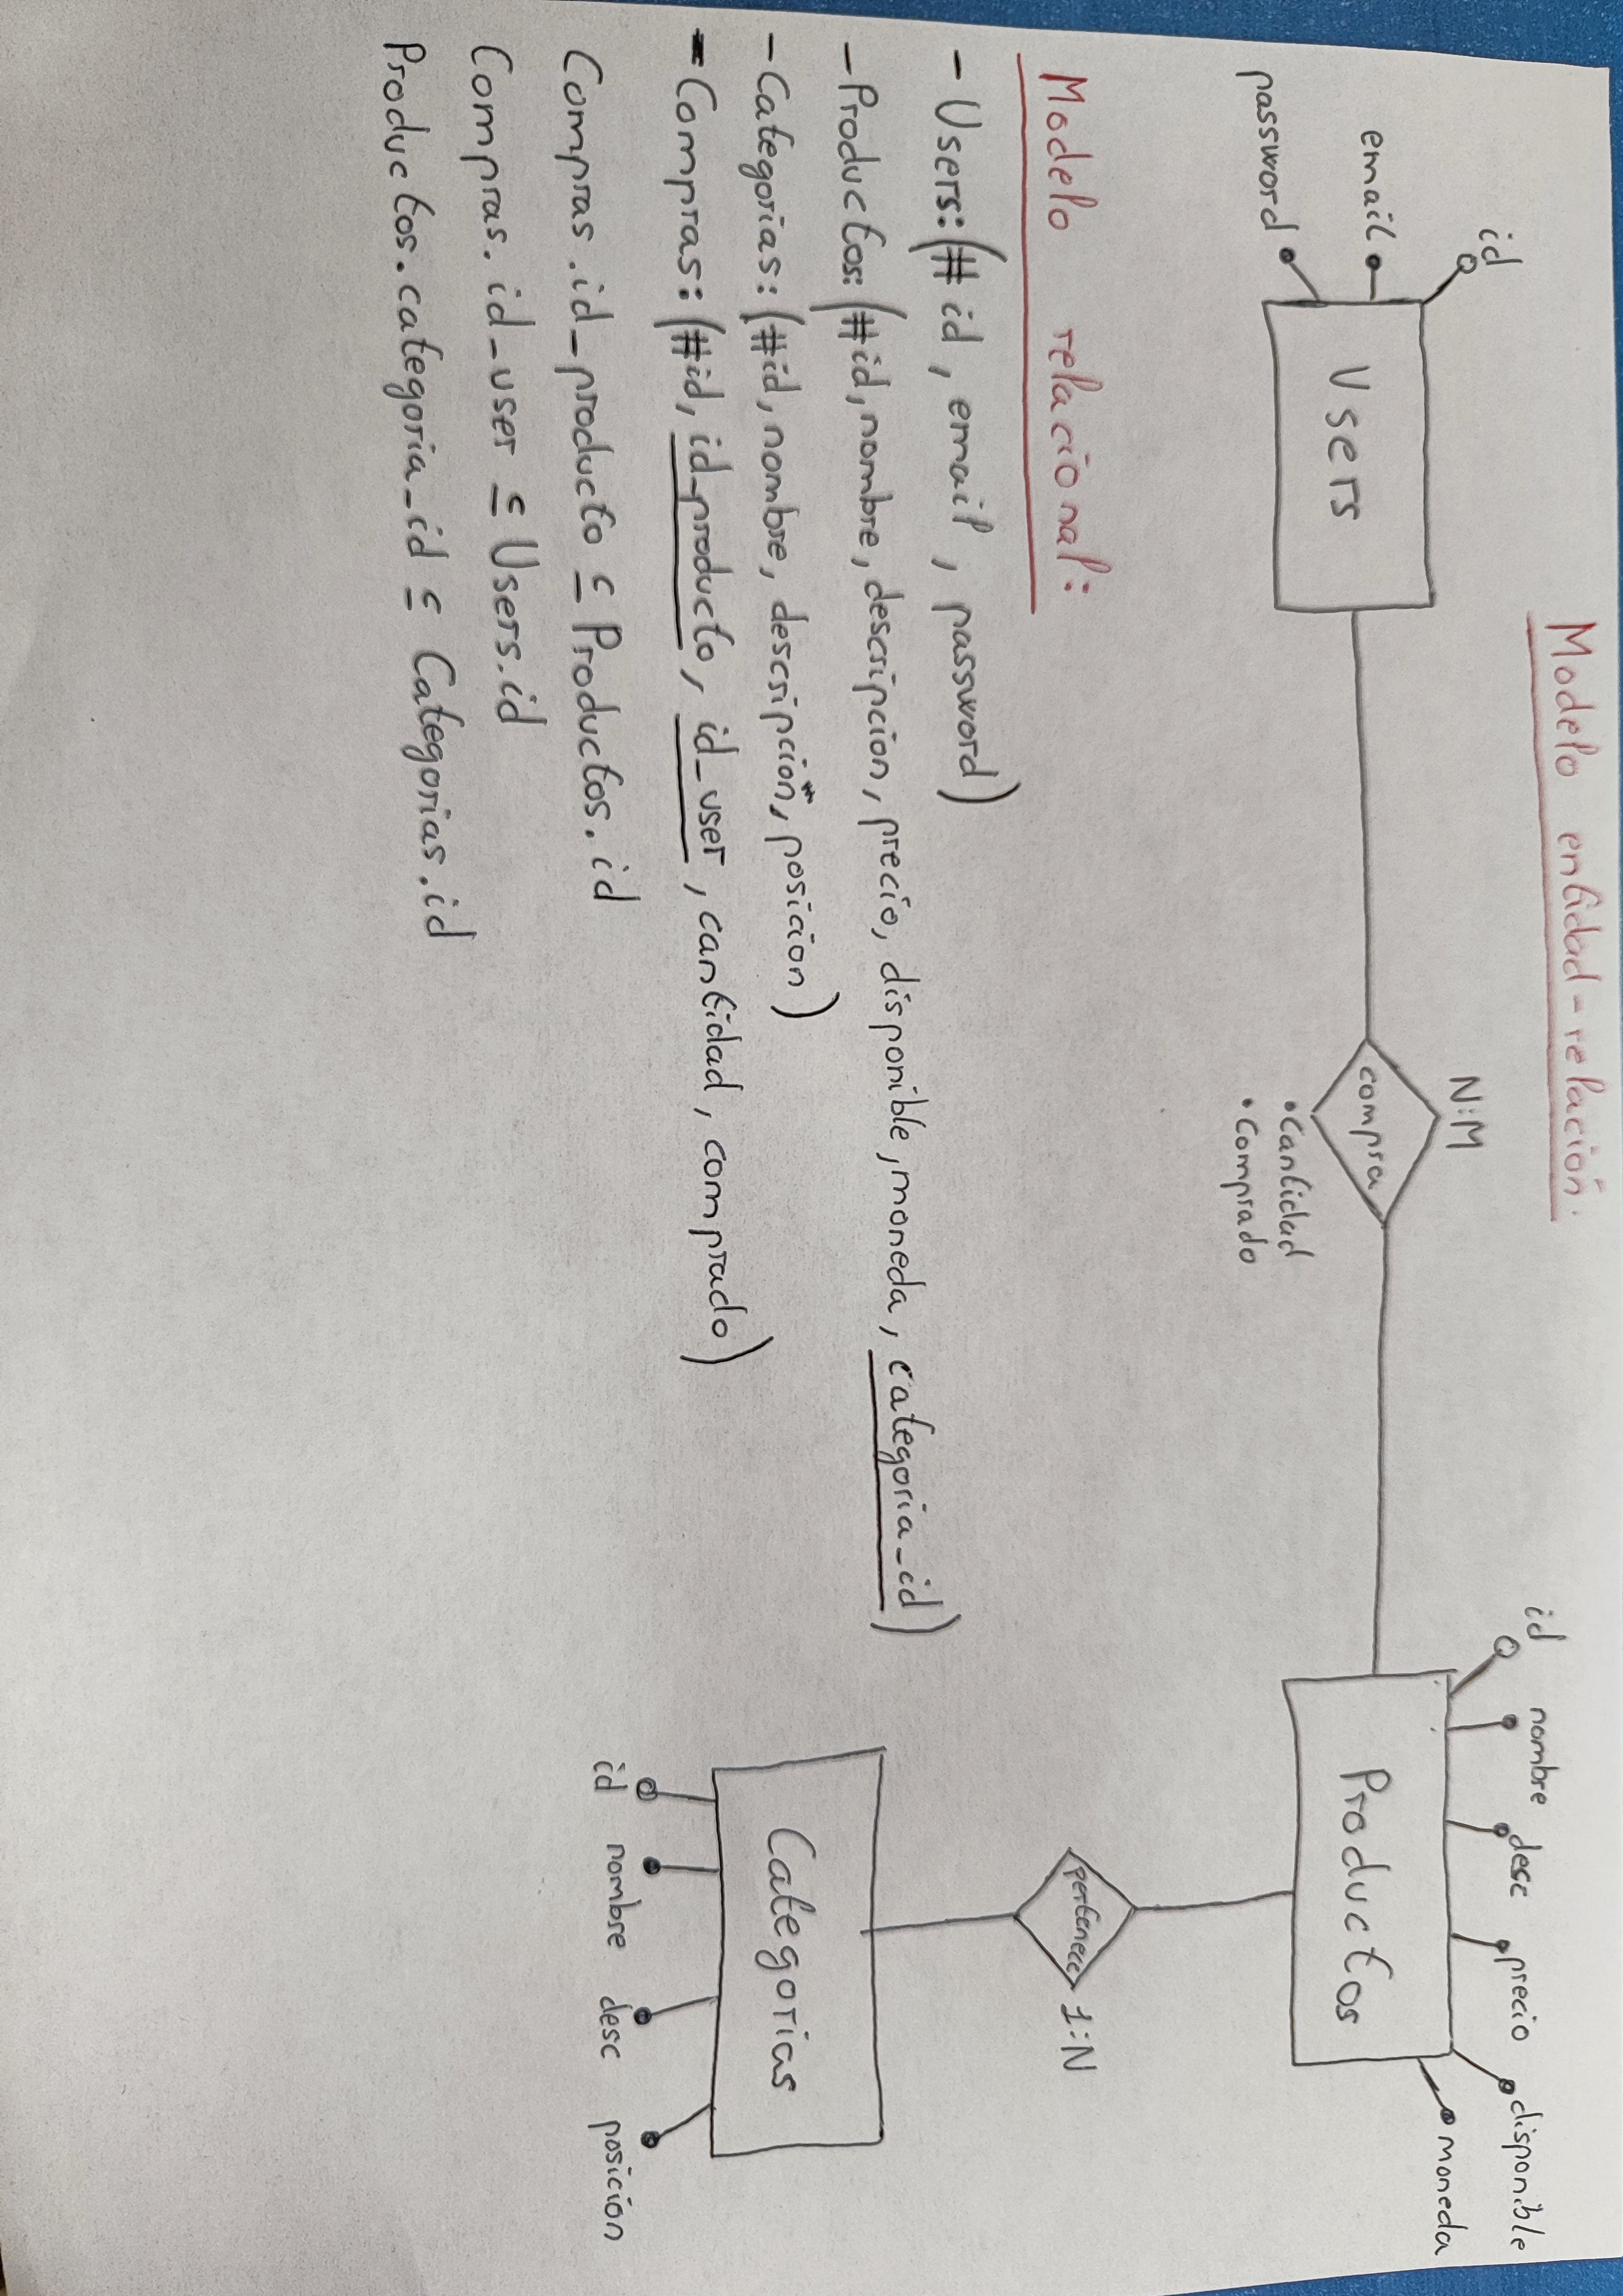 Modelo entidad-relación.
id
email
password
Users
N:M
compra
• Cantidad
• Comprado
id
nombre
desc
precio
disponible
moneda
Productos
pertenece
1:N
Categorias
id
nombre
desc
posición
Modelo relacional:
- Users: (# id, email, password)
- Productos: (#id, nombre, descripcion, precio, disponible, moneda, categoria_id)
- Categorias: (#id, nombre, descripción, posicion)
- Compras: (#id, id_producto, id_user, cantidad, comprado)
Compras.id_producto ⊆ Productos.id
Compras.id_user ⊆ Users.id
Productos.categoria_id ⊆ Categorias.id